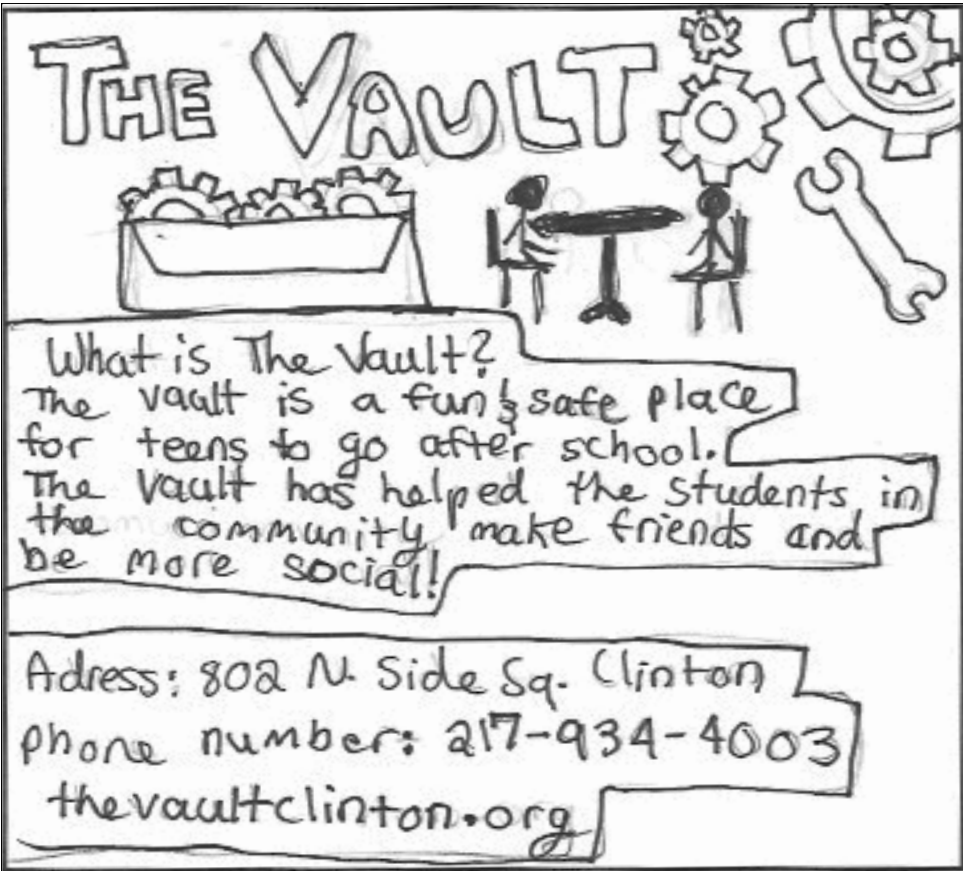 THE VAULT
What is The Vault?
The vault is a fun & safe place
for teens to go after school.
The Vault has helped the students in
the community make friends and
be more social!
Adress: 802 N. Side Sq. Clinton
phone number: 217-934-4003
thevaultclinton.org